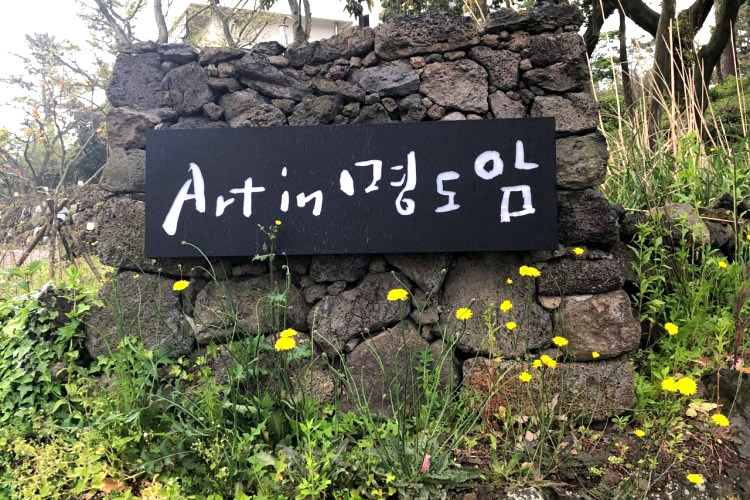 Art in 명도암